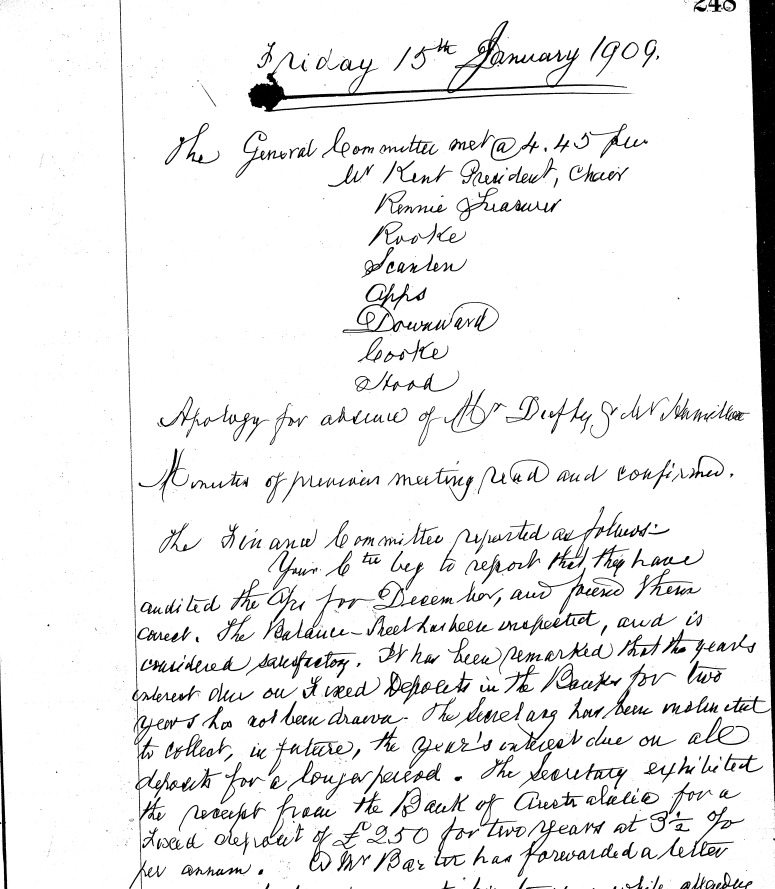 248
Friday 15th January 1909.
The General Committee met @ 4.45 pm
Mr Kent President, Chair
Rennie Treasurer
Rooke
Scanlen
Apps
Downward
Cooke
Hood
Apology for absence of Mr Duffy & Mr Hamilton
Minutes of previous meeting read and confirmed.
The Finance Committee reported as follows:-
Your Ctee beg to report that they have
audited the a/cs for December, and found them
correct. The Balance-Sheet has been inspected, and is
considered satisfactory. It has been remarked that the year's
interest due on Fixed Deposits in the Banks for two
years has not been drawn. The Secretary has been instructed
to collect, in future, the year's interest due on all
deposits for a longer period. The Secretary exhibited
the receipt from the Bank of Australasia for a
Fixed deposit of £250 for two years at 3½ %
per annum. A Mr has forwarded a letter
while attending